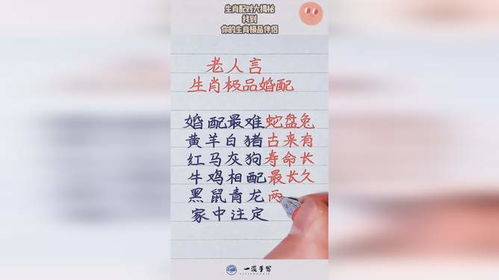 生肖配对大揭秘
找到
你的生肖极品伴侣
老人言
生肖极品婚配
婚配最难蛇盘兔
黄羊白猪古来有
红马灰狗寿命长
牛鸡相配最长久
黑鼠青龙两
家中注定
一凝手写